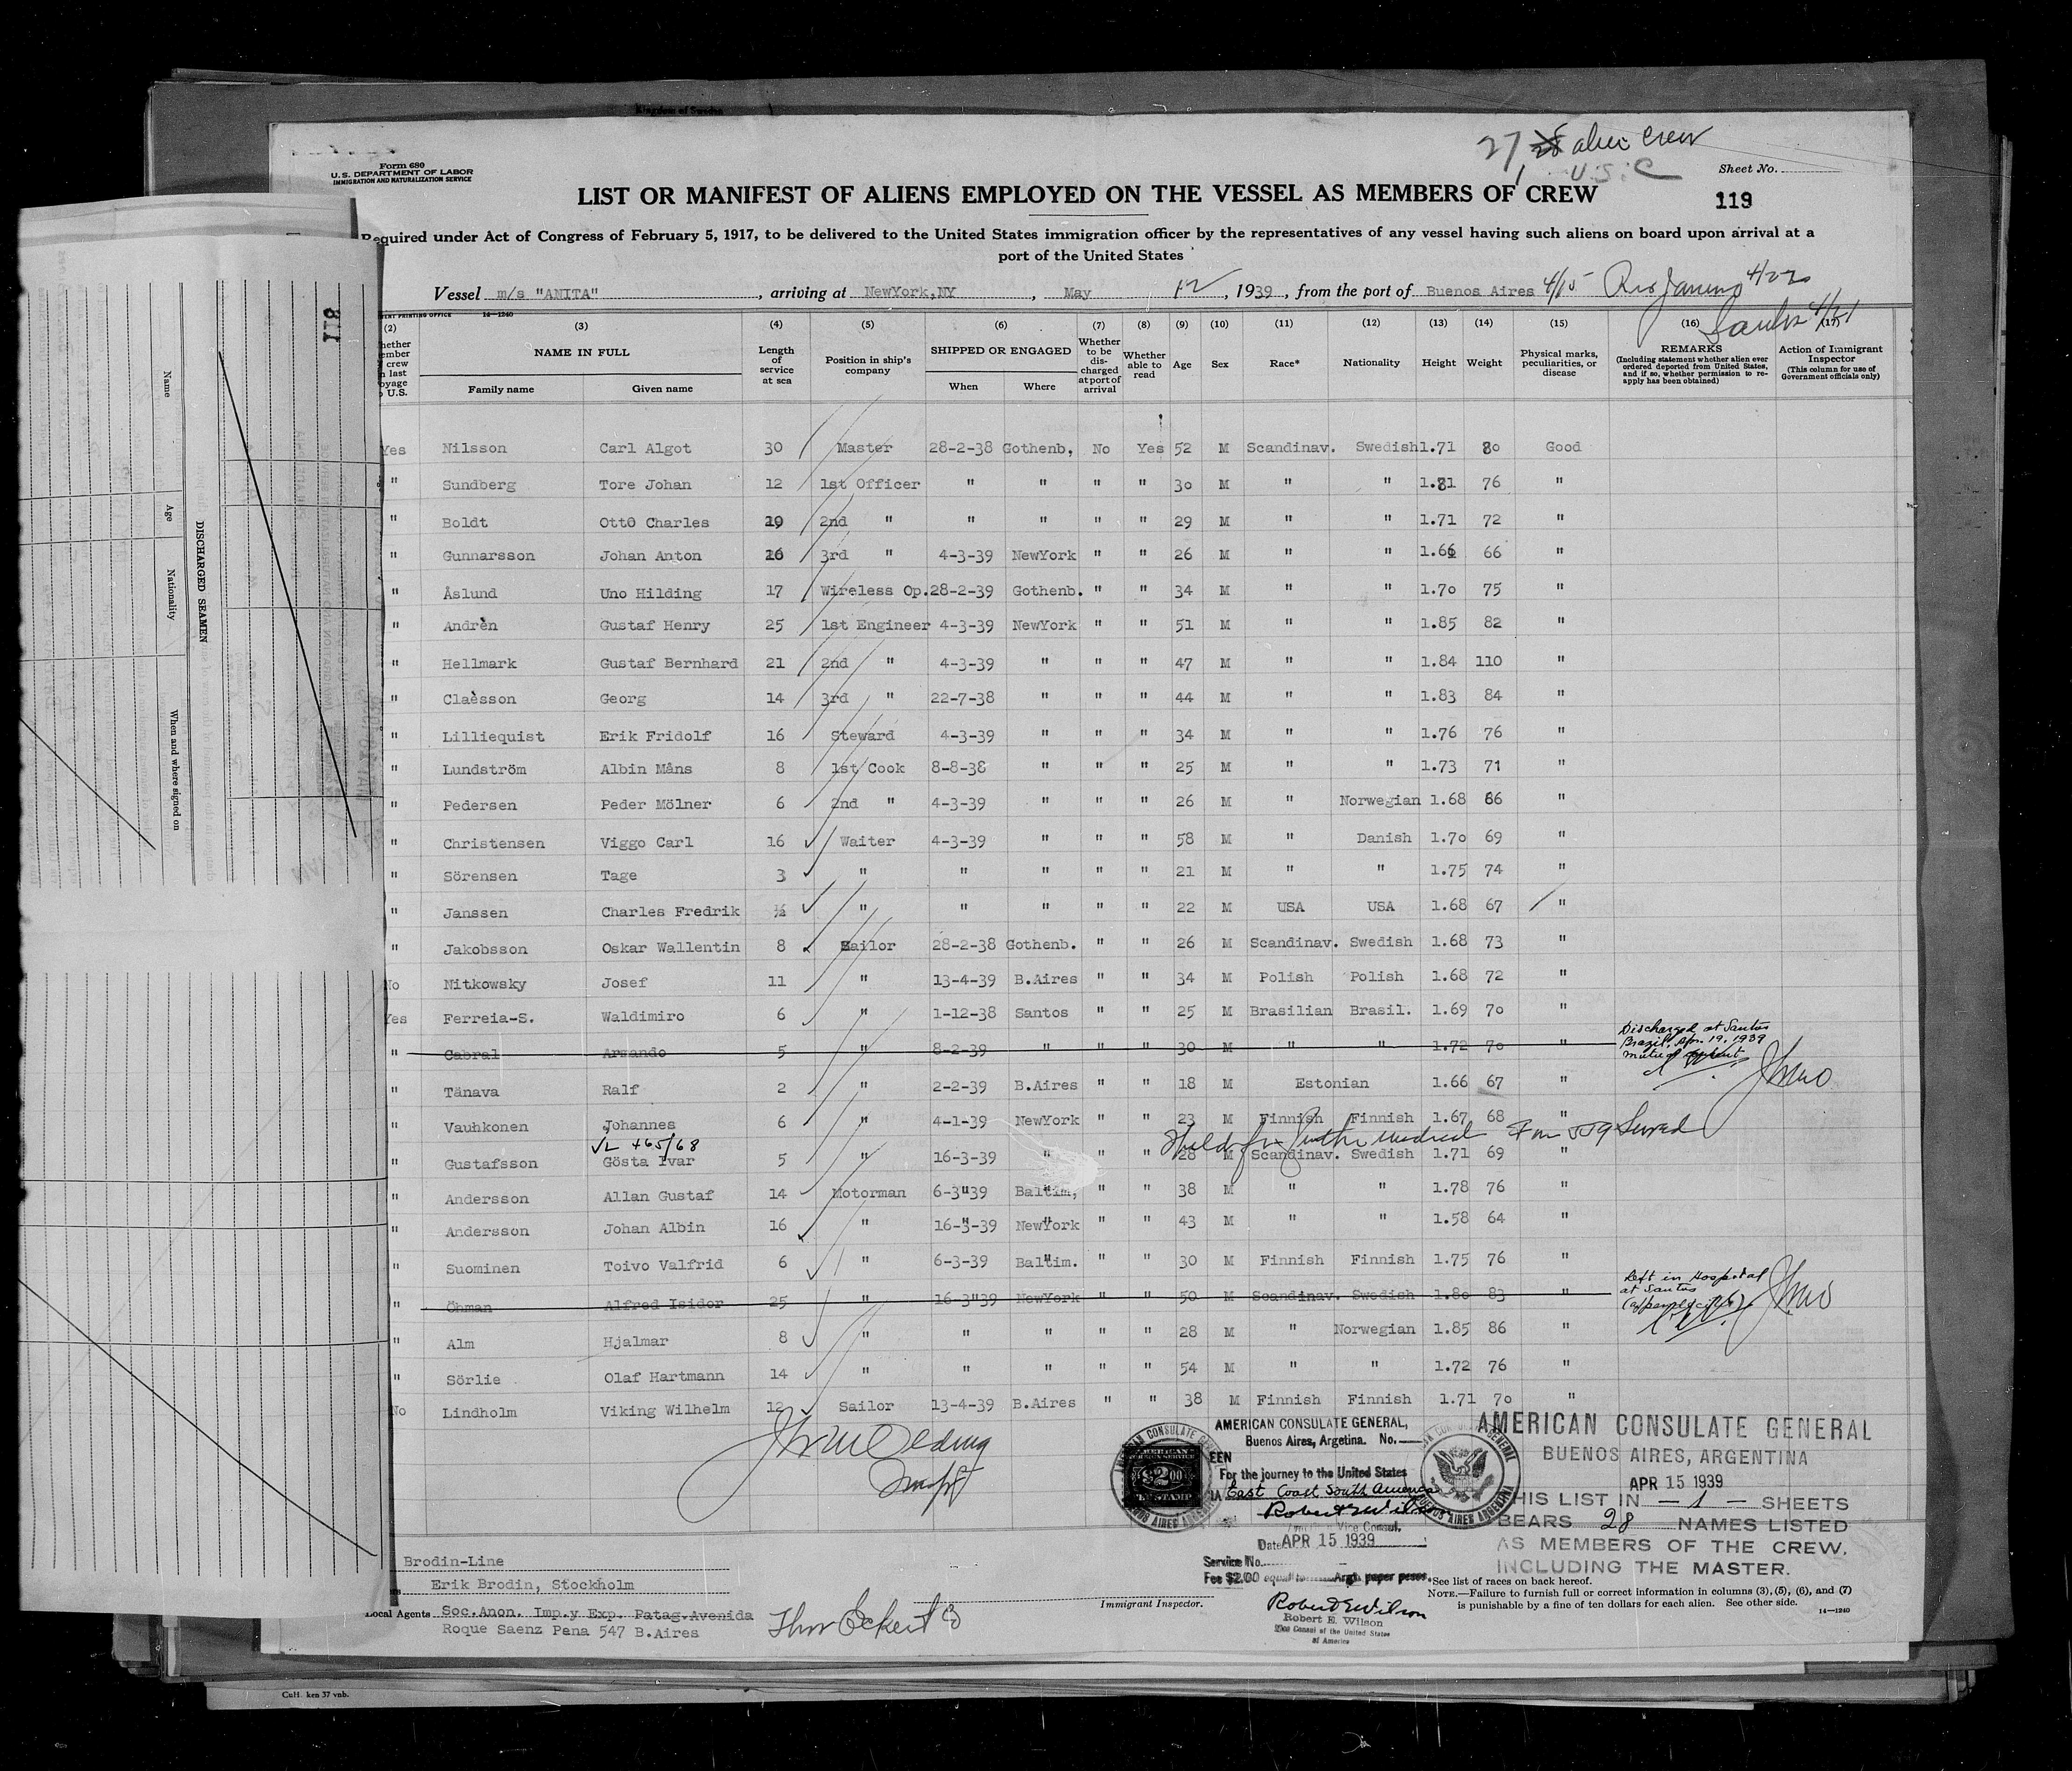 Kingdom of Sweden
27, 28 alien crew
1 U.S.C
Form 680
U.S. DEPARTMENT OF LABOR
IMMIGRATION AND NATURALIZATION SERVICE
Sheet No.
LIST OR MANIFEST OF ALIENS EMPLOYED ON THE VESSEL AS MEMBERS OF CREW
119
Required under Act of Congress of February 5, 1917, to be delivered to the United States immigration officer by the representatives of any vessel having such aliens on board upon arrival at a
port of the United States
Vessel m/s "ANITA", arriving at NewYork,NY, May 12, 1939, from the port of Buenos Aires 4/15 Rio Janeiro 4/22
Santos 4/21
14—1240
(2) (3) (4) (5) (6) (7) (8) (9) (10) (11) (12) (13) (14) (15) (16) (17)
NAME IN FULL
Family name Given name
Length of service at sea
Position in ship's company
SHIPPED OR ENGAGED
When Where
Whether to be discharged at port of arrival
Whether able to read
Age Sex Race* Nationality Height Weight
Physical marks, peculiarities, or disease
REMARKS
(Including statement whether alien ever ordered deported from United States, and if so, whether permission to reapply has been obtained)
Action of Immigrant Inspector
(This column for use of Government officials only)
Yes Nilsson Carl Algot 30 Master 28-2-38 Gothenb, No Yes 52 M Scandinav. Swedish 1.71 80 Good
" Sundberg Tore Johan 12 1st Officer " " " " 30 M " " 1.81 76 "
" Boldt Otto Charles 2nd " " " " " 29 M " " 1.71 72 "
" Gunnarsson Johan Anton 3rd " 4-3-39 NewYork " " 26 M " " 1.66 66 "
" Åslund Uno Hilding 17 Wireless Op. 28-2-39 Gothenb. " " 34 M " " 1.70 75 "
" Andrèn Gustaf Henry 25 1st Engineer 4-3-39 NewYork " " 51 M " " 1.85 82 "
" Hellmark Gustaf Bernhard 21 2nd " 4-3-39 " " " 47 M " " 1.84 110 "
" Claèsson Georg 14 3rd " 22-7-38 " " " 44 M " " 1.83 84 "
" Lilliequist Erik Fridolf 16 Steward 4-3-39 " " " 34 M " " 1.76 76 "
" Lundström Albin Måns 8 1st Cook 8-8-38 " " " 25 M " " 1.73 71 "
" Pedersen Peder Mölner 6 2nd " 4-3-39 " " " 26 M " Norwegian 1.68 66 "
" Christensen Viggo Carl 16 Waiter 4-3-39 " " " 58 M " Danish 1.70 69 "
" Sörensen Tage 3 " " " " " 21 M " " 1.75 74 "
" Janssen Charles Fredrik ½ " " " " " 22 M USA USA 1.68 67 "
" Jakobsson Oskar Wallentin 8 Sailor 28-2-38 Gothenb. " " 26 M Scandinav. Swedish 1.68 73 "
No Nitkowsky Josef 11 " 13-4-39 B.Aires " " 34 M Polish Polish 1.68 72 "
Yes Ferreia-S. Waldimiro 6 " 1-12-38 Santos " " 25 M Brasilian Brasil. 1.69 70 "
" Cabral Armando 5 " 8-2-39 " " " 30 M " " 1.72 70 " Discharged at Santos Brazil, Apr. 19, 1939 mutual
" Tänava Ralf 2 " 2-2-39 B.Aires " " 18 M Estonian 1.66 67 "
" Vauhkonen Johannes 6 " 4-1-39 NewYork " " 23 M Finnish Finnish 1.67 68 "
Held for further Medical
" Gustafsson Gösta Ivar 5 " 16-3-39 " " " 28 M Scandinav. Swedish 1.71 69 "
" Andersson Allan Gustaf 14 Motorman 6-3-39 Baltim, " " 38 M " " 1.78 76 "
" Andersson Johan Albin 16 " 16-3-39 NewYork " " 43 M " " 1.58 64 "
" Suominen Toivo Valfrid 6 " 6-3-39 Baltim. " " 30 M Finnish Finnish 1.75 76 "
" Öhman Alfred Isidor 25 " 16-3-39 NewYork " " 50 M Scandinav. Swedish 1.80 83 " Left in Hospital at Santos
" Alm Hjalmar 8 " " " " " 28 M " Norwegian 1.85 86 "
" Sörlie Olaf Hartmann 14 " " " " " 54 M " " 1.72 76 "
No Lindholm Viking Wilhelm 12 Sailor 13-4-39 B.Aires " " 38 M Finnish Finnish 1.71 70 "
AMERICAN CONSULATE GENERAL,
Buenos Aires, Argetina. No.
SEEN
For the journey to the United States
VIA East Coast South America
Robert E Wilson
Vice Consul.
Date APR 15 1939
Service No.
Fee $2.00 equal to Argt. paper pesos.
Robert E Wilson
Robert E. Wilson
Vice Consul of the United States
of America
AMERICAN CONSULATE GENERAL
BUENOS AIRES, ARGENTINA
APR 15 1939
THIS LIST IN — 1 — SHEETS
BEARS 28 NAMES LISTED
AS MEMBERS OF THE CREW,
INCLUDING THE MASTER.
Brodin-Line
Erik Brodin, Stockholm
Local Agents Soc.Anon. Imp.y Exp. Patag.Avenida
Roque Saenz Pena 547 B.Aires
Thor Eckert
Immigrant Inspector.
*See list of races on back hereof.
NOTE.—Failure to furnish full or correct information in columns (3), (5), (6), and (7)
is punishable by a fine of ten dollars for each alien. See other side.
14—1240
118
DISCHARGED SEAMEN
Name Age Nationality When and where signed on
CuH. ken 37 vnb.